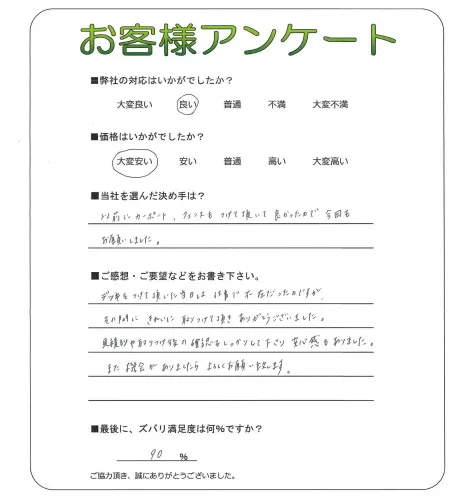 お客様アンケート
■弊社の対応はいかがでしたか？
大変良い 良い 普通 不満 大変不満
■価格はいかがでしたか？
大変安い 安い 普通 高い 大変高い
■当社を選んだ決め手は？
以前にカーポート、フェンスもつけて頂いて良かったので今回も
お願いしました。
■ご感想・ご要望などをお書き下さい。
デッキをつけて頂いた当日は仕事で不在だったのですが、
その間に きれいに取りつけて頂きありがとうございました。
見積りや取りつけ時の確認もしっかりして下さり安心感もありました。
また機会がありましたら よろしくお願い致します。
■最後に、ズバリ満足度は何%ですか？
90 %
ご協力頂き、誠にありがとうございました。